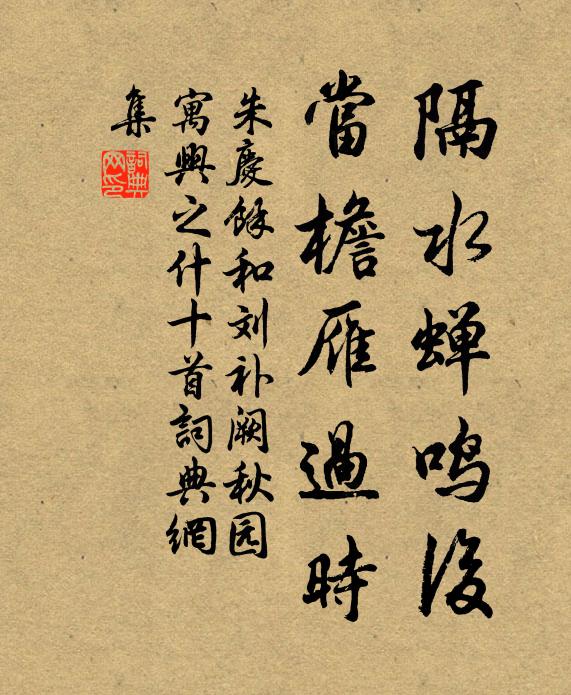 隔水蝉鸣後
當檐雁過時
朱慶餘和刘补阙秋园
寓興之什十首詞典網
集
詞典网印